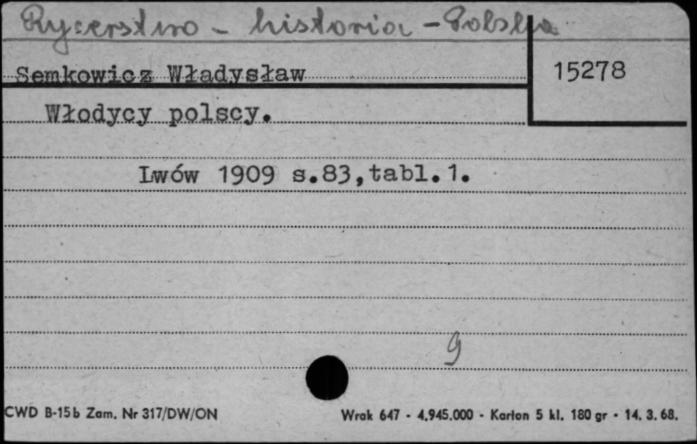 Rycerstwo - historia - Polska
Semkowicz Władysław
15278
Włodycy polscy.
Lwów 1909 s.83,tabl.1.
9
CWD B-15b Zam. Nr 317/DW/ON
Wrak 647 - 4.945.000 - Karton 5 kl. 180 gr - 14. 3. 68.